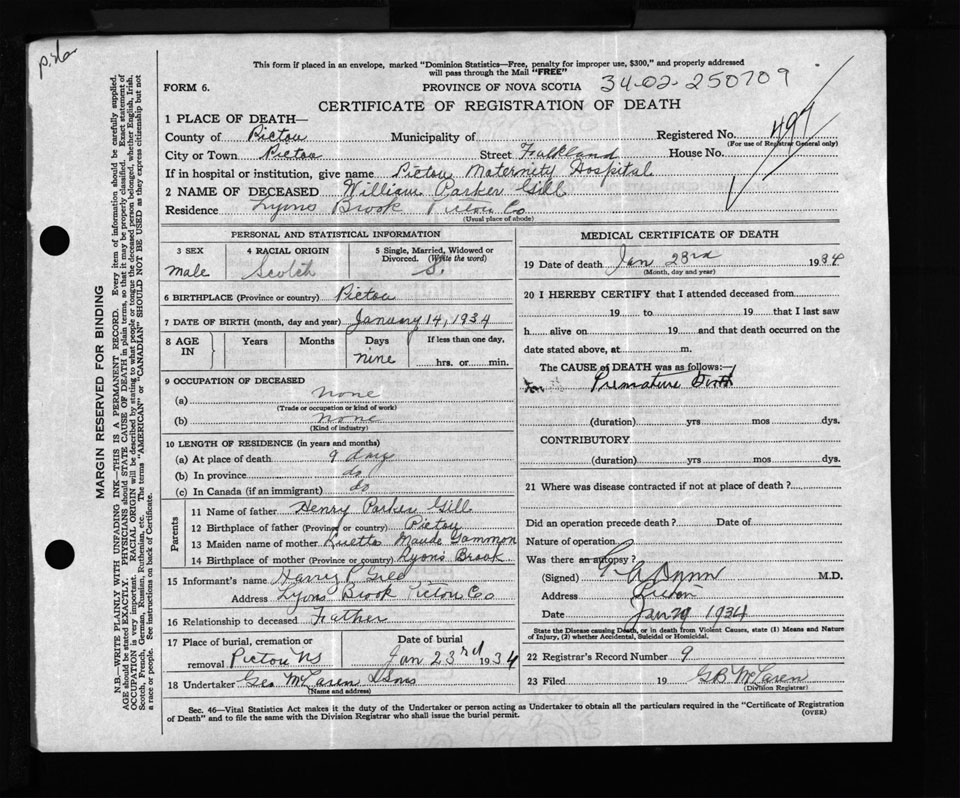 This form if placed in an envelope, marked "Dominion Statistics—Free, penalty for improper use, $300," and properly addressed
will pass through the Mail "FREE"
FORM 6. PROVINCE OF NOVA SCOTIA 34-02-250709
CERTIFICATE OF REGISTRATION OF DEATH
1 PLACE OF DEATH—
County of Pictou Municipality of Registered No. 497
(For use of Registrar General only)
City or Town Pictou Street Falkland House No.
If in hospital or institution, give name Pictou Maternity Hospital
2 NAME OF DECEASED William Parker Gill
Residence Lyons Brook Pictou Co
(Usual place of abode)
PERSONAL AND STATISTICAL INFORMATION
3 SEX 4 RACIAL ORIGIN 5 Single, Married, Widowed or
Divorced. (Write the word)
male Scotch S.
6 BIRTHPLACE (Province or country) Pictou
7 DATE OF BIRTH (month, day and year) January 14, 1934
8 AGE IN Years Months Days If less than one day,
nine hrs. or min.
9 OCCUPATION OF DECEASED
(a) none
(Trade or occupation or kind of work)
(b) none
(Kind of industry)
10 LENGTH OF RESIDENCE (in years and months)
(a) At place of death 9 days
(b) In province do
(c) In Canada (if an immigrant) do
Parents
11 Name of father Henry Parker Gill
12 Birthplace of father (Province or country) Pictou
13 Maiden name of mother Luetta Maude Gammon
14 Birthplace of mother (Province or country) Lyons Brook
15 Informant's name Harry P
Address Lyons Brook Pictou Co
16 Relationship to deceased Father
17 Place of burial, cremation or Date of burial
removal Pictou NS Jan 23rd 1934
18 Undertaker Geo McLaren & Sons
(Name and address)
MEDICAL CERTIFICATE OF DEATH
19 Date of death Jan 23rd 1934
(Month, day and year)
20 I HEREBY CERTIFY that I attended deceased from
19 to 19 that I last saw
h alive on 19 and that death occurred on the
date stated above, at m.
The CAUSE of DEATH was as follows:—
Premature Birth
(duration) yrs mos dys.
CONTRIBUTORY
(duration) yrs mos dys.
21 Where was disease contracted if not at place of death?
Did an operation precede death? Date of
Nature of operation
Was there an autopsy?
(Signed) M.D.
Address Pictou
Date Jan 1934
State the Disease causing Death, or in death from Violent Causes, state (1) Means and Nature
of Injury, (2) whether Accidental, Suicidal or Homicidal.
22 Registrar's Record Number 9
23 Filed 19 GB McLaren
(Division Registrar)
Sec. 46—Vital Statistics Act makes it the duty of the Undertaker or person acting as Undertaker to obtain all the particulars required in the "Certificate of Registration
of Death" and to file the same with the Division Registrar who shall issue the burial permit.
(OVER)
MARGIN RESERVED FOR BINDING
N.B.—WRITE PLAINLY WITH UNFADING INK—THIS IS A PERMANENT RECORD. Every item of information should be carefully supplied.
AGE should be stated EXACTLY. PHYSICIANS should STATE CAUSE OF DEATH in plain terms, so that it may be properly classified. Exact statement of
OCCUPATION is very important. RACIAL ORIGIN will be described by stating to what people or tongue the deceased person belonged, whether English, Irish,
Scotch, French, German, Russian, Ruthenian, etc. The terms "AMERICAN" or "CANADIAN" SHOULD NOT BE USED as they express citizenship but not
a race or people. See instructions on back of Certificate.